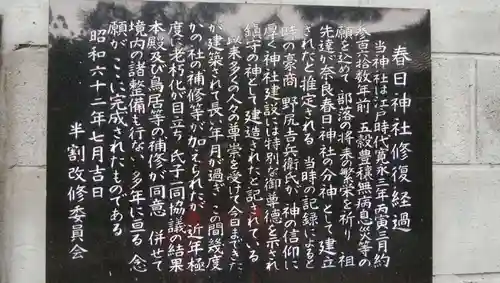 春日神社修復経過
当神社は江戸時代寛永三年丙寅三月約
参百拾数年前 五穀豊穣無病息災等の
願を込めて 部落の将来の繁栄を祈り 祖
先達が奈良春日神社の分神として建立
されたと推定される 当時の記録によると
時の豪商 野尻吉兵衛氏が 神の信仰に
厚く神社建設には特別な御尊徳を示され
鎮守の神として建造されたと記されている
以来多くの人々の尊崇を受けて今日まできた
が建築されて長い年月が過ぎ この間幾度
かの社の補修等が加えられたが 近年極
度に老朽化が目立ち 氏子一同協議の結果
本殿及び鳥居等の補修が同意 併せて
境内の諸整備も行ない 多年に亘る 念
願が ここに完成されたものである
昭和六十二年七月吉日
半割改修委員会